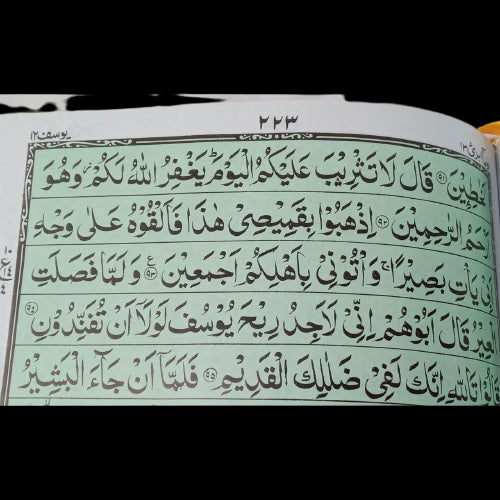 يوسف ١٢
٢٢٣
لَخٰطِـِٕيْنَ ۝٩١ قَالَ لَا تَثْرِيْبَ عَلَيْكُمُ الْيَوْمَ ؕ يَغْفِرُ اللّٰهُ لَكُمْ ؗ وَهُوَ
اَرْحَمُ الرّٰحِمِيْنَ ۝٩٢ اِذْهَبُوْا بِقَمِيْصِيْ هٰذَا فَاَلْقُوْهُ عَلٰى وَجْهِ
يَاْتِ بَصِيْرًا ۚ وَاْتُوْنِيْ بِاَهْلِكُمْ اَجْمَعِيْنَ ۝٩٣ ع وَلَمَّا فَصَلَتِ
الْعِيْرُ قَالَ اَبُوْهُمْ اِنِّيْ لَاَجِدُ رِيْحَ يُوْسُفَ لَوْلَاۤ اَنْ تُفَنِّدُوْنِ ۝٩٤
قَالُوْا تَاللّٰهِ اِنَّكَ لَفِيْ ضَلٰلِكَ الْقَدِيْمِ ۝٩٥ فَلَمَّاۤ اَنْ جَآءَ الْبَشِيْرُ